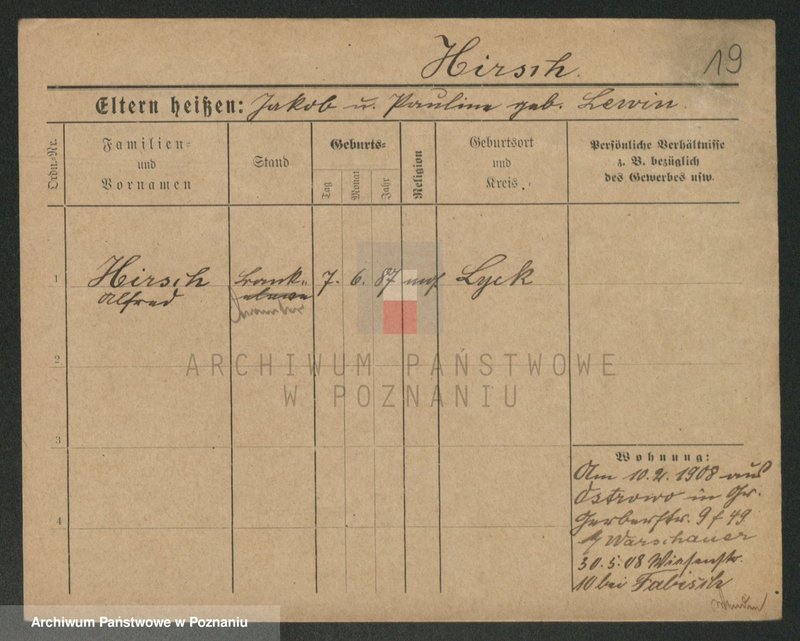 Hirsch.
19
Eltern heißen: Jakob u. Pauline geb. Lewin.
Ordn.-Nr.
Familien-
und
Vornamen
Stand
Geburts-
Tag
Monat
Jahr
Religion
Geburtsort
und
Kreis.
Persönliche Verhältnisse
z. B. bezüglich
des Gewerbes usw.
1
Hirsch
Alfred
bank-
eleve
7. 6. 87
mos.
Lyck
2
3
4
ARCHIWUM PAŃSTWOWE
W POZNANIU
Wohnung:
Am 10. 2. 1908 aus
Ostrowo in Gr.
Gerberstr. 9 f 49
b/ Warschauer
30. 5. 08 Wiesenstr.
10 bei Fabisch
Archiwum Państwowe w Poznaniu